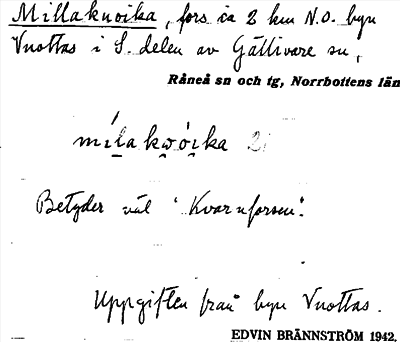 Millakuoika, fors ca 2 km N.O. byn
Vuottas i S. delen av Gällivare sn,
Råneå sn och tg, Norrbottens län
mílakwói̯ka 2
Betyder väl "Kvarnforsen".
Uppgiften från byn Vuottas.
EDVIN BRÄNNSTRÖM 1942.